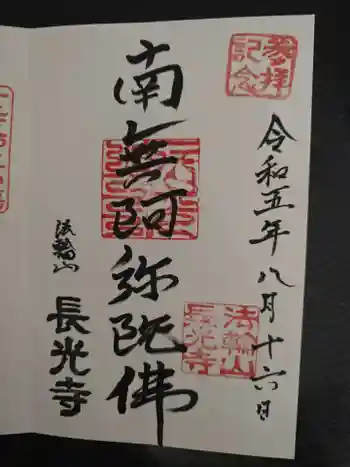 参拝
記念
令和五年八月十六日
南無阿弥陀佛
法輪山
長光寺
法輪山
長光寺